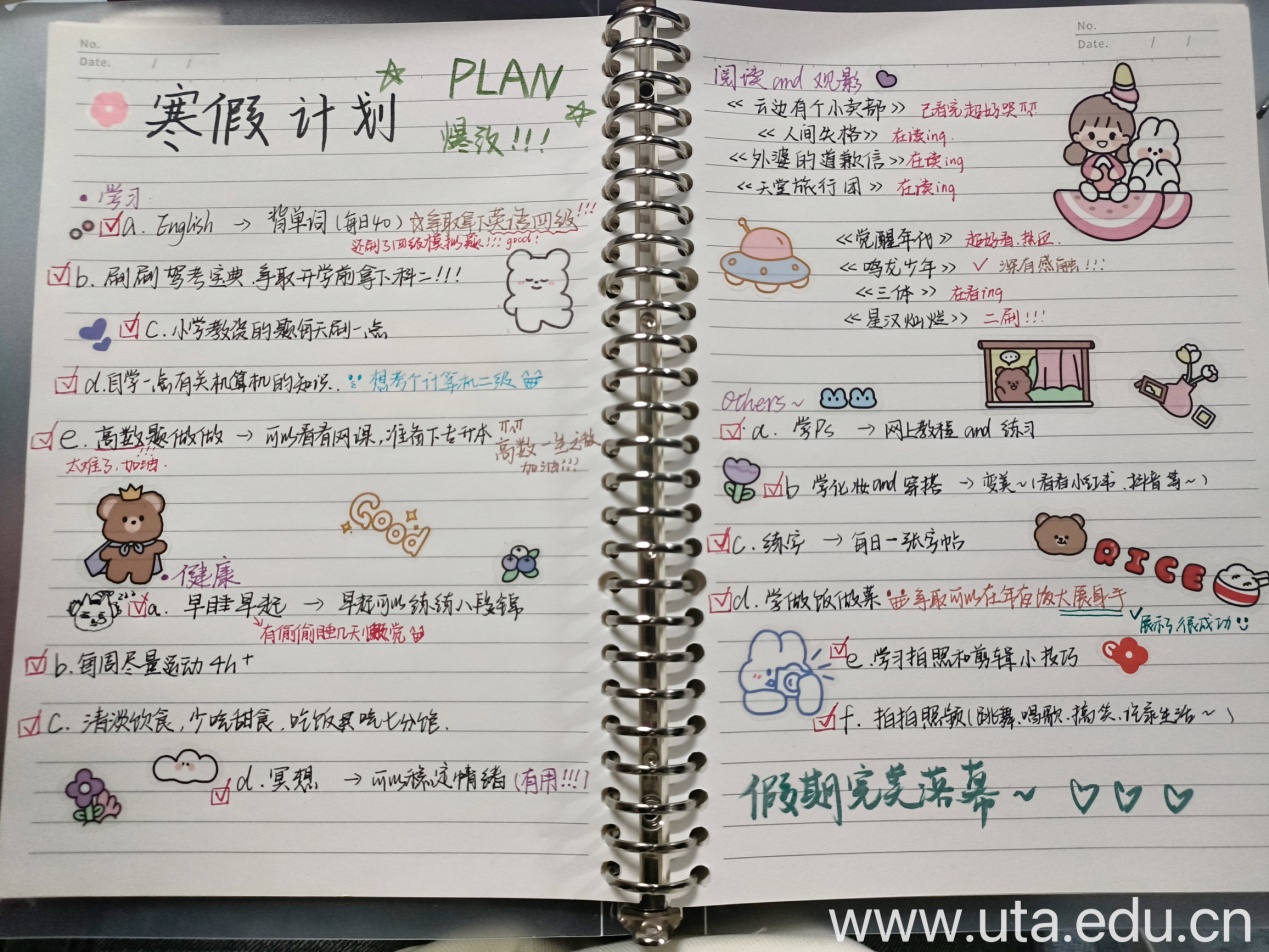 No.
Date. / /
寒假计划
PLAN
爆改!!!
• 学习
a. English → 背单词(每日40) ☆争取拿下英语四级!!!
还刷了四级模拟题!!! good!
b. 刷刷驾考宝典,争取开学前拿下科二!!!
c. 小学教资的题每天刷一点
d. 自学一点有关机算机的知识.. 想考个计算机二级
e. 高数题做做 → 可以看看网课,准备下专升本
太难了,加油.
高数一生之敌
加油!!!
Good
• 健康
a. 早睡早起 → 早起可以练练八段锦
有偷偷睡几天懒觉
b. 每周尽量运动4h+
c. 清淡饮食,少吃甜食,吃饭只吃七分饱.
d. 冥想 → 可以稳定情绪(有用!!!)
No.
Date. / /
阅读and观影
《云边有个小卖部》 已看完超好哭
《人间失格》 在读ing.
《外婆的道歉信》在读ing
《天堂旅行团》 在读ing
《觉醒年代》 超好看,热血.
《鸣龙少年》 ✓ 深有感触!!!
《三体》 在看ing
《星汉灿烂》 二刷!!!
others~
a. 学Ps → 网上教程 and 练习
b 学化妆and穿搭 → 变美~(看看小红书、抖音等~)
c. 练字 → 每日一张字帖
RICE
d. 学做饭做菜 争取可以在年夜饭大展身手
✓展示了很成功
e. 学习拍照和剪辑小技巧
f. 拍拍照频(跳舞、唱歌、搞笑、记录生活~)
假期完美落幕~ ♡♡♡
www.uta.edu.cn